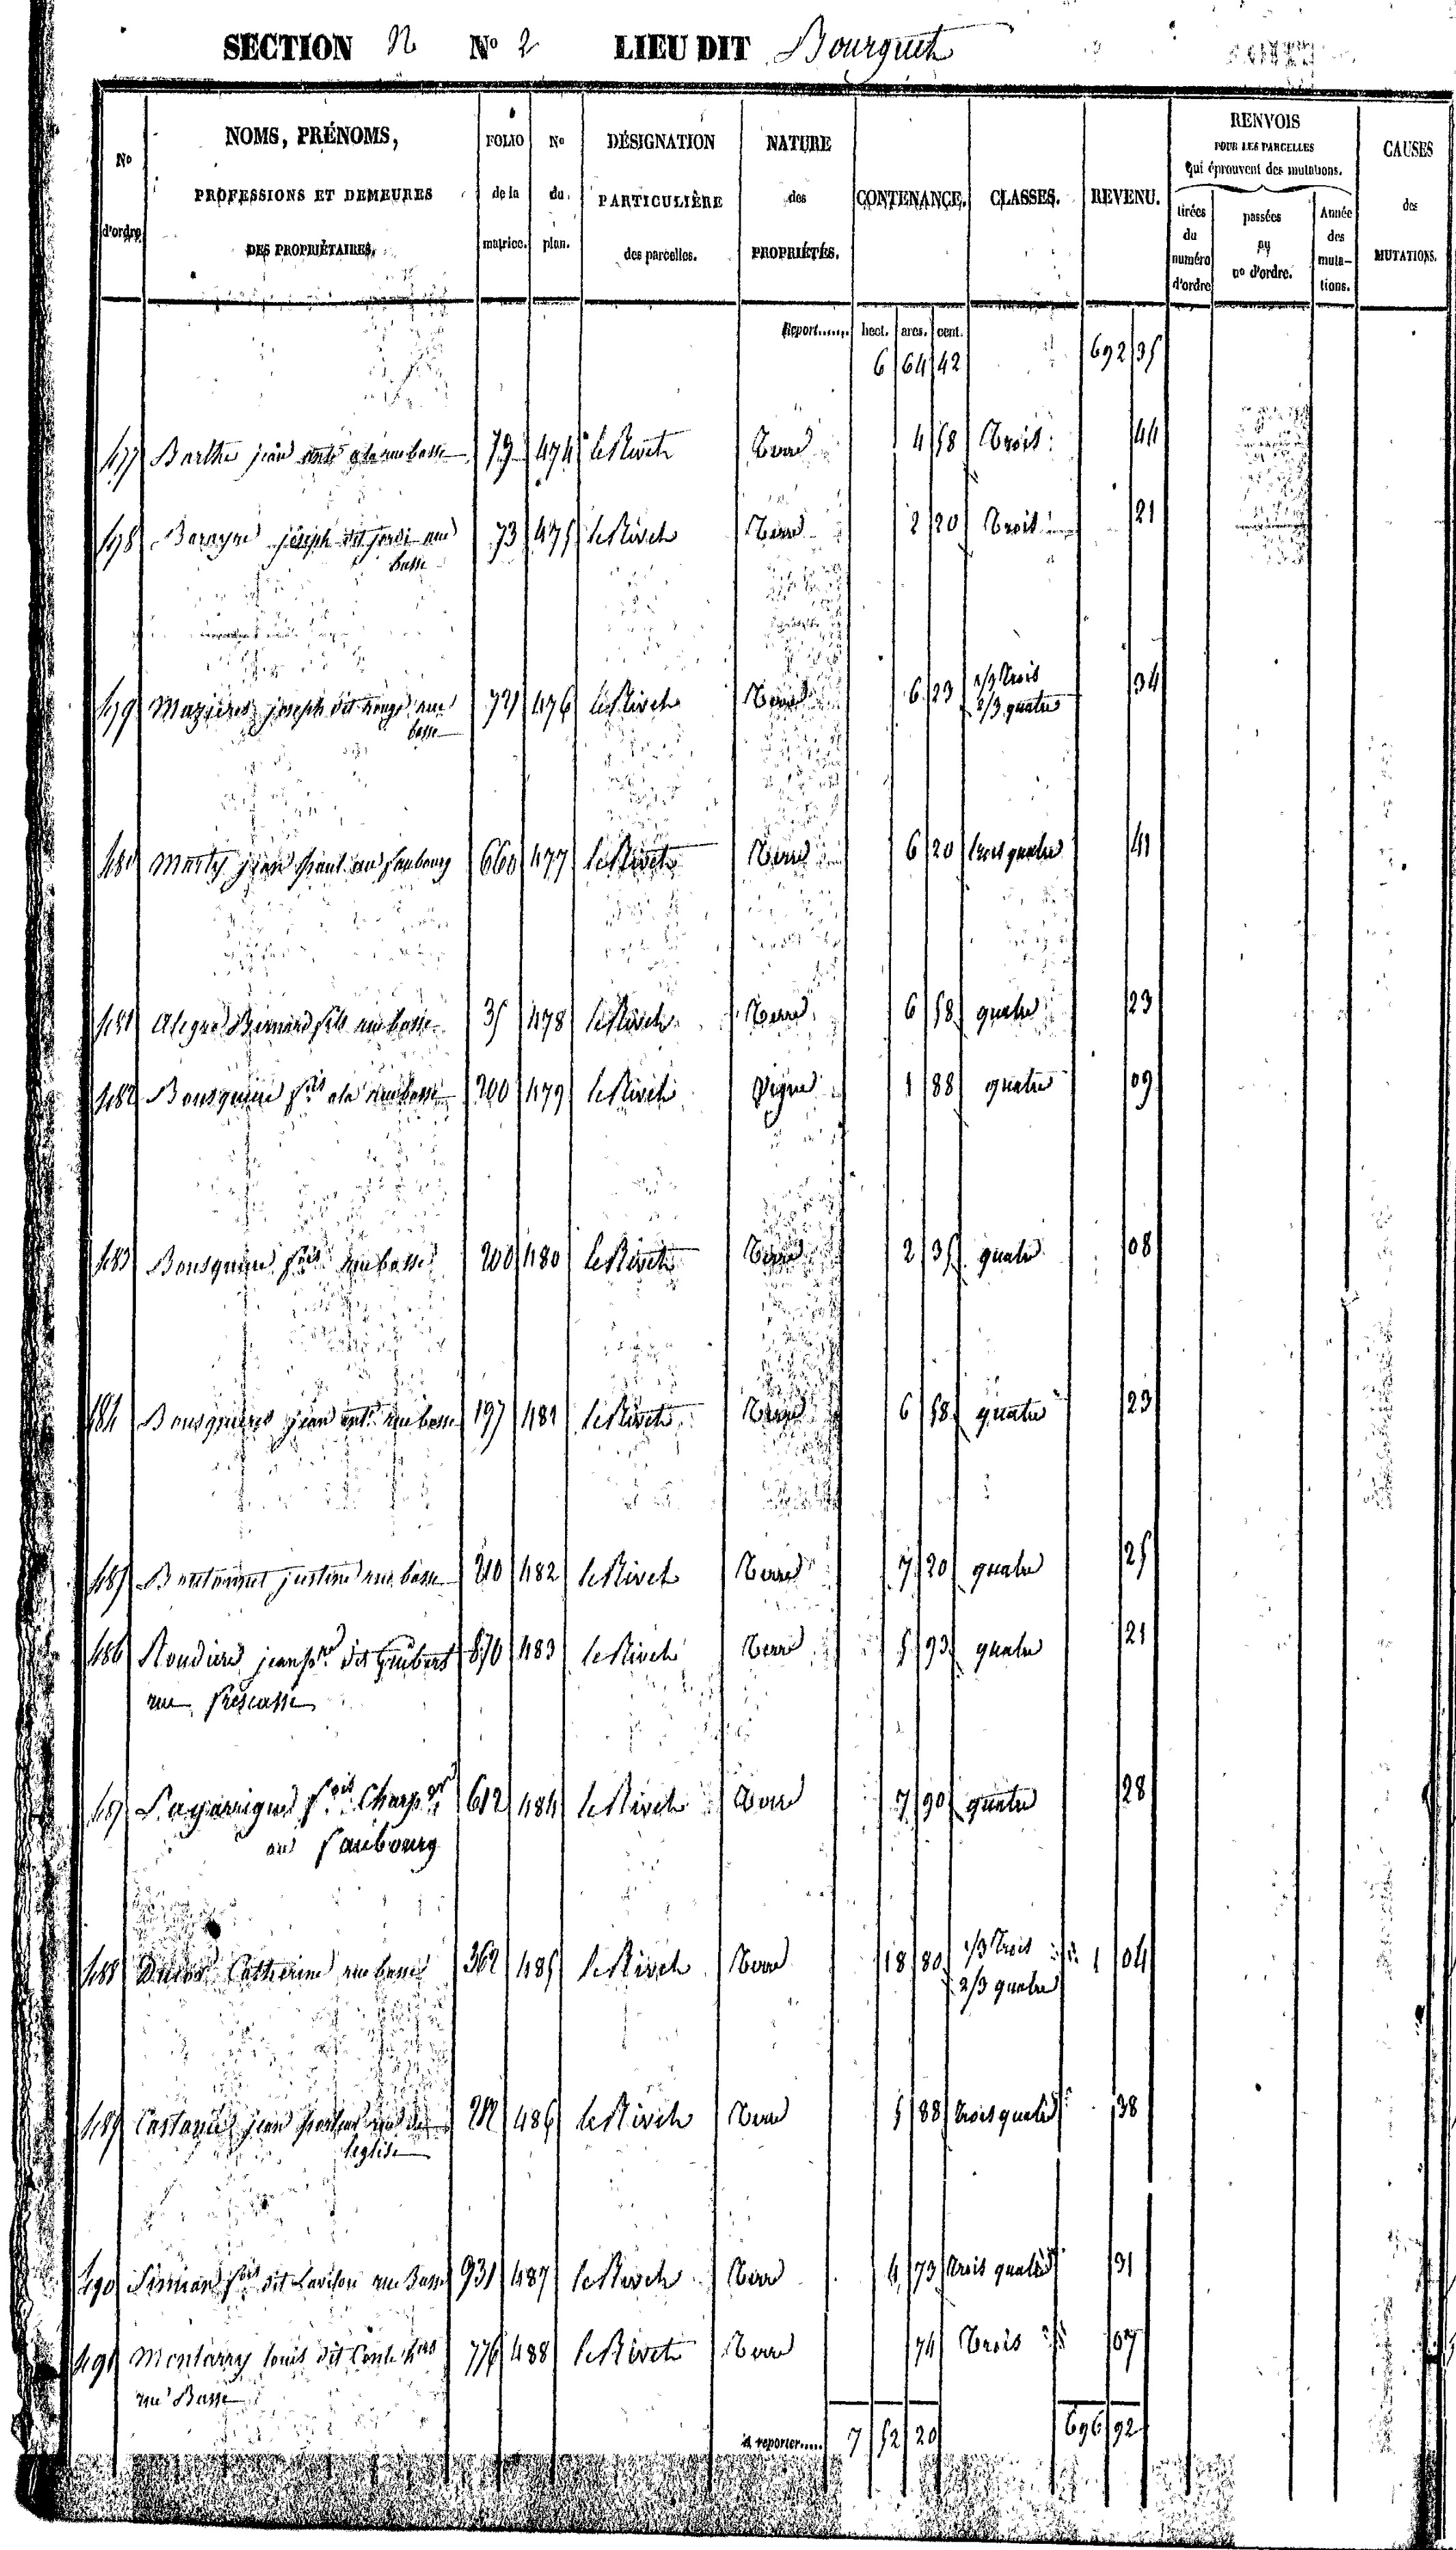 SECTION N N° 2 LIEU DIT Bourguet
N° d'ordre
NOMS, PRÉNOMS,
PROFESSIONS ET DEMEURES
DES PROPRIÉTAIRES.
FOLIO de la matrice.
N° du plan.
DÉSIGNATION PARTICULIÈRE des parcelles.
NATURE des PROPRIÉTÉS.
CONTENANCE.
CLASSES.
REVENU.
RENVOIS
POUR LES PARCELLES
Qui éprouvent des mutations.
tirées du numéro d'ordre
passées au no d'ordre.
Année des mutations.
CAUSES des MUTATIONS.
Report...... hect. ares. cent.
6 64 42 692 35
477 Barthe jean a la rue basse 79 474 le Rivet Terre 4 58 Trois 44
478 Joseph dit rue 73 475 le Rivet Terre 2 20 Trois 21
basse
479 Mazières joseph dit rouge rue 721 476 le Rivet Terre 6 23 1/3 Trois 34
basse 2/3 quatre
480 Marty jean Paul au faubourg 660 477 le Rivet Terre 6 20 trois quatre 41
481 Alegre Bernard fils rue basse 35 478 le Rivet Terre 6 58 quatre 23
482 Bousquière fois a la rue basse 200 479 le Rivet Vigne 1 88 quatre 09
483 Bousquière fois rue basse 200 480 le Rivet Terre 2 35 quatre 08
484 Bousquière jean ant. rue basse 197 481 le Rivet Terre 6 58 quatre 23
485 justine rue basse 210 482 le Rivet Terre 7 20 quatre 25
486 Roudière jean pre dit Guibert 870 483 le Rivet Terre 5 93 quatre 21
rue
487 Lagarrigue fois Charp. 612 484 le Rivet Terre 7 90 quatre 28
au faubourg
488 Catherine rue basse 362 485 le Rivet Terre 18 80 1/3 Trois 1 04
2/3 quatre
489 jean rue de 486 le Rivet Terre 5 88 trois quatre 38
leglise
490 Simian fois dit rue Basse 931 487 le Rivet Terre 4 73 trois quatre 31
491 Montarry louis dit 776 488 le Rivet Terre 74 Trois 07
rue Basse
A reporter..... 7 52 20 696 92